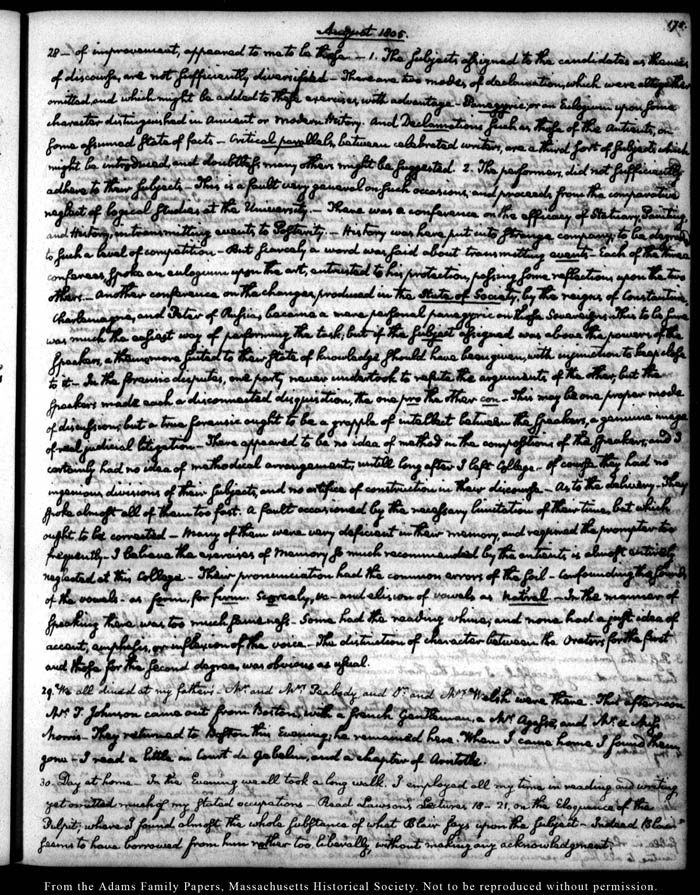 August 1805.
173.
28 — of improvement, appeared to me to be these — 1. The subjects, assigned to the candidates as themes
of discourse, are not sufficiently diversified — There are two modes of declamation, which were altogether
omitted, and which might be added to these exercises, with advantage — Panegyric, or an Eulogium upon some
character distinguished in Ancient or modern History. And Declamations such as those of the Antients, on
some assumed State of facts — Critical parallels, between celebrated writers, are a third sort of subjects which
might be introduced, and doubtless many others might be suggested. 2. The performers, did not sufficiently
adhere to their subjects — This is a fault very general on such occasions, and proceeds from the comparative
neglect of logical studies at the University. — There was a conference on the efficacy of Statuary, Painting,
and History, in transmitting events to Posterity. — History was here put into strange company, to be degraded
to such a level of competition — But scarcely a word was said about transmitting events — Each of the three
conferees, spoke an eulogium upon the art, entrusted to his protection, passing some reflections upon the two
others — Another conference on the changes, produced in the State of Society, by the reigns of Constantine,
Charlemagne, and Peter of Russia, became a mere personal panegyric on those Sovereigns. This to be sure
was much the easiest way of performing the task; but if the subject assigned was above the powers of the
speakers, a theme more suited to their state of knowledge should have been given, with injunction to keep close
to it — In the forensic disputes, one party, never undertook to refute the arguments of the other, but the
speakers made each a disconnected disquisition, the one pro the other con — This may be one proper mode
of discussion; but a true forensic ought to be a grapple of intellect between the speakers, a genuine image
of real judicial litigation — There appeared to be no idea of method in the compositions of the speakers; and I
certainly had no idea of methodical arrangement, untill long after I left College — Of course they had no
ingenious divisions of their subjects, and no artifice of construction in their discourse — As to the delivery — They
spoke almost all of them too fast. A fault occasioned by the necessary limitation of their time, but which
ought to be corrected — Many of them were very deficient in their memory, and required the prompter too
frequently — I believe the exercises of Memory so much recommended by the antients is almost entirely
neglected at this College — Their pronunciation had the common errors of the soil — Confounding the sounds
of the vowels — as form, for furm — &c — and elision of vowels as natral — In the manner of
speaking there was too much sameness. Some had the reading whine, and none had a just idea of
accent, emphasis, or inflexion of the voice — The distinction of character between the Orators for the first
and those for the second degree, was obvious as usual.
29. We all dined at my father's — Mr. and Mrs. Peabody, and Dr. and Mrs. Welsh were there. This afternoon
Mr. T. Johnson came out from Boston, with a french Gentleman, a Mr. and Mr. & Miss
Morris. They returned to Boston this Evening; he remained here. When I came home I found them
gone — I read a little in Court de Gebelin, and a chapter of Aristotle.
30. Day at home. In the Evening we all took a long walk. I employed all my time in reading and writing,
yet omitted much of my stated occupations — Read Lawson's Lectures 18 — 21, on the Eloquence of the
Pulpit; where I found almost the whole substance of what Blair says upon the subject — Indeed Blair
seems to have borrowed from him rather too liberally, without making any acknowledgment.
From the Adams Family Papers, Massachusetts Historical Society. Not to be reproduced without permission.